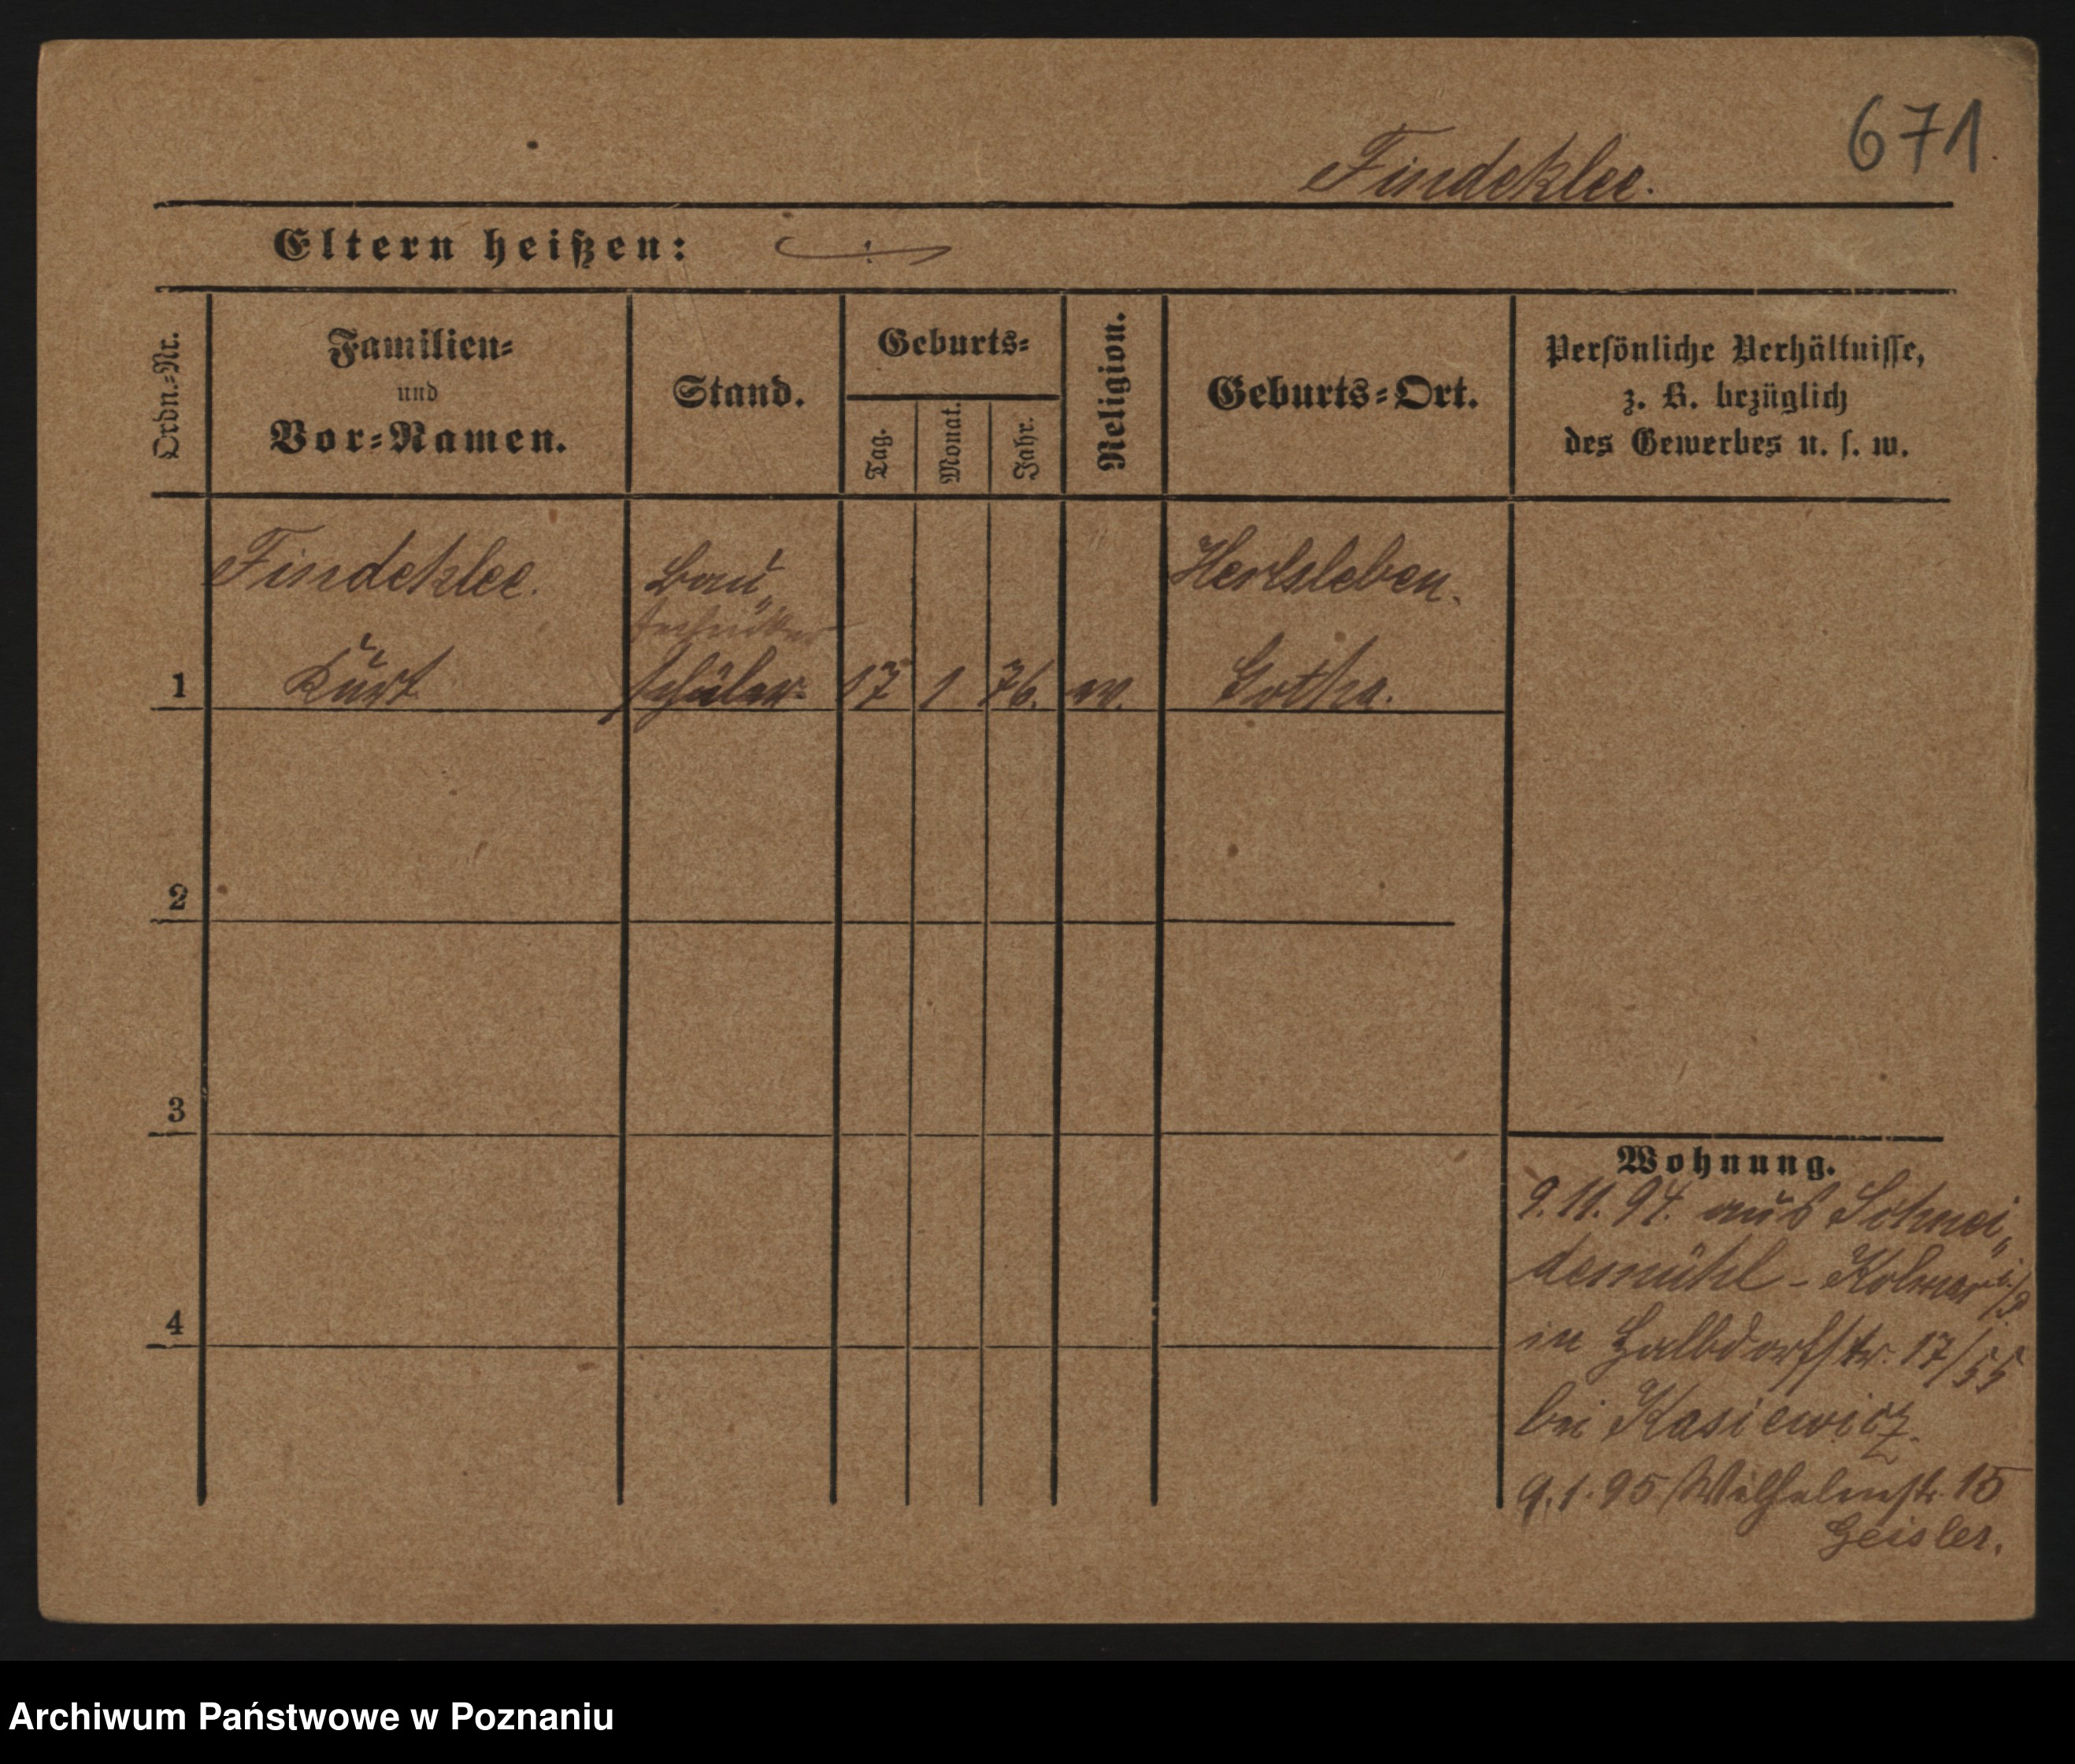 671
Findeklee.
Eltern heißen:
Ordn.=Nr.
Familien=
und
Vor=Namen.
Stand.
Geburts=
Tag.
Monat.
Jahr.
Religion.
Geburts=Ort.
Persönliche Verhältnisse,
z. B. bezüglich
des Gewerbes u. s. w.
Findeklee.
Bau„
Herbsleben.
techniker
1 Kurt schüler 17 1 76. ev. Gotha.
2
3
4
Wohnung.
9. 11. 94. aus Schnei„
demühl - Kolmar i/P
in Halbdorfstr. 17/55
bei Kasiewicz.
9. 1. 95 Wilhelmstr. 15
Geisler.
Archiwum Państwowe w Poznaniu